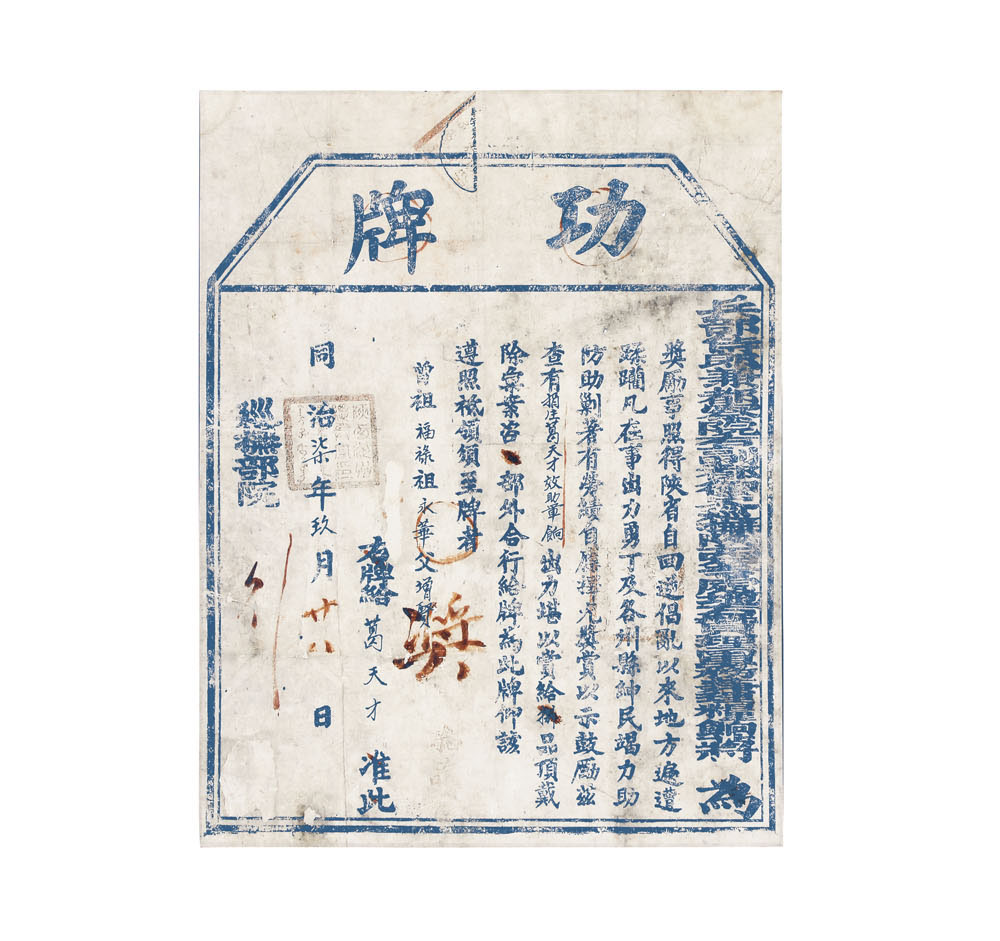 功牌
兵部侍郎兼都察院右副都御史巡撫陝西
為
獎勵事照得陝省自回逆倡亂以來地方遍遭
蹂躪凡在事出力勇丁及各州縣紳民竭力助
防助剿著有勞績自應獎賞以示鼓勵茲
查有捐生葛天才效助軍餉出力堪以賞給品頂戴
除彙案咨部外合行給牌為此牌仰該
遵照祗領須至牌者
曾祖福祿祖永華父增
右牌給葛天才准此
獎
同治柒年玖月廿八日
巡撫部院